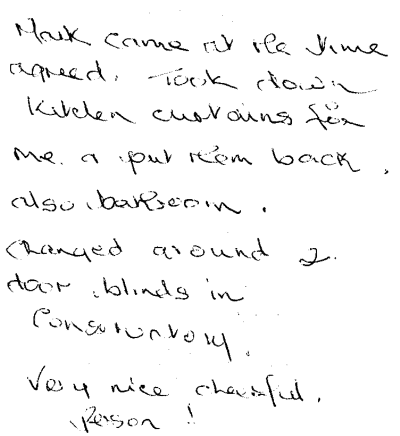 Mark came at the time
agreed. Took down
Kitchen curtains for
me. & put them back.
also bathroom.
Changed around 2
door blinds in
Conservatory.
Very nice cheerful.
person!